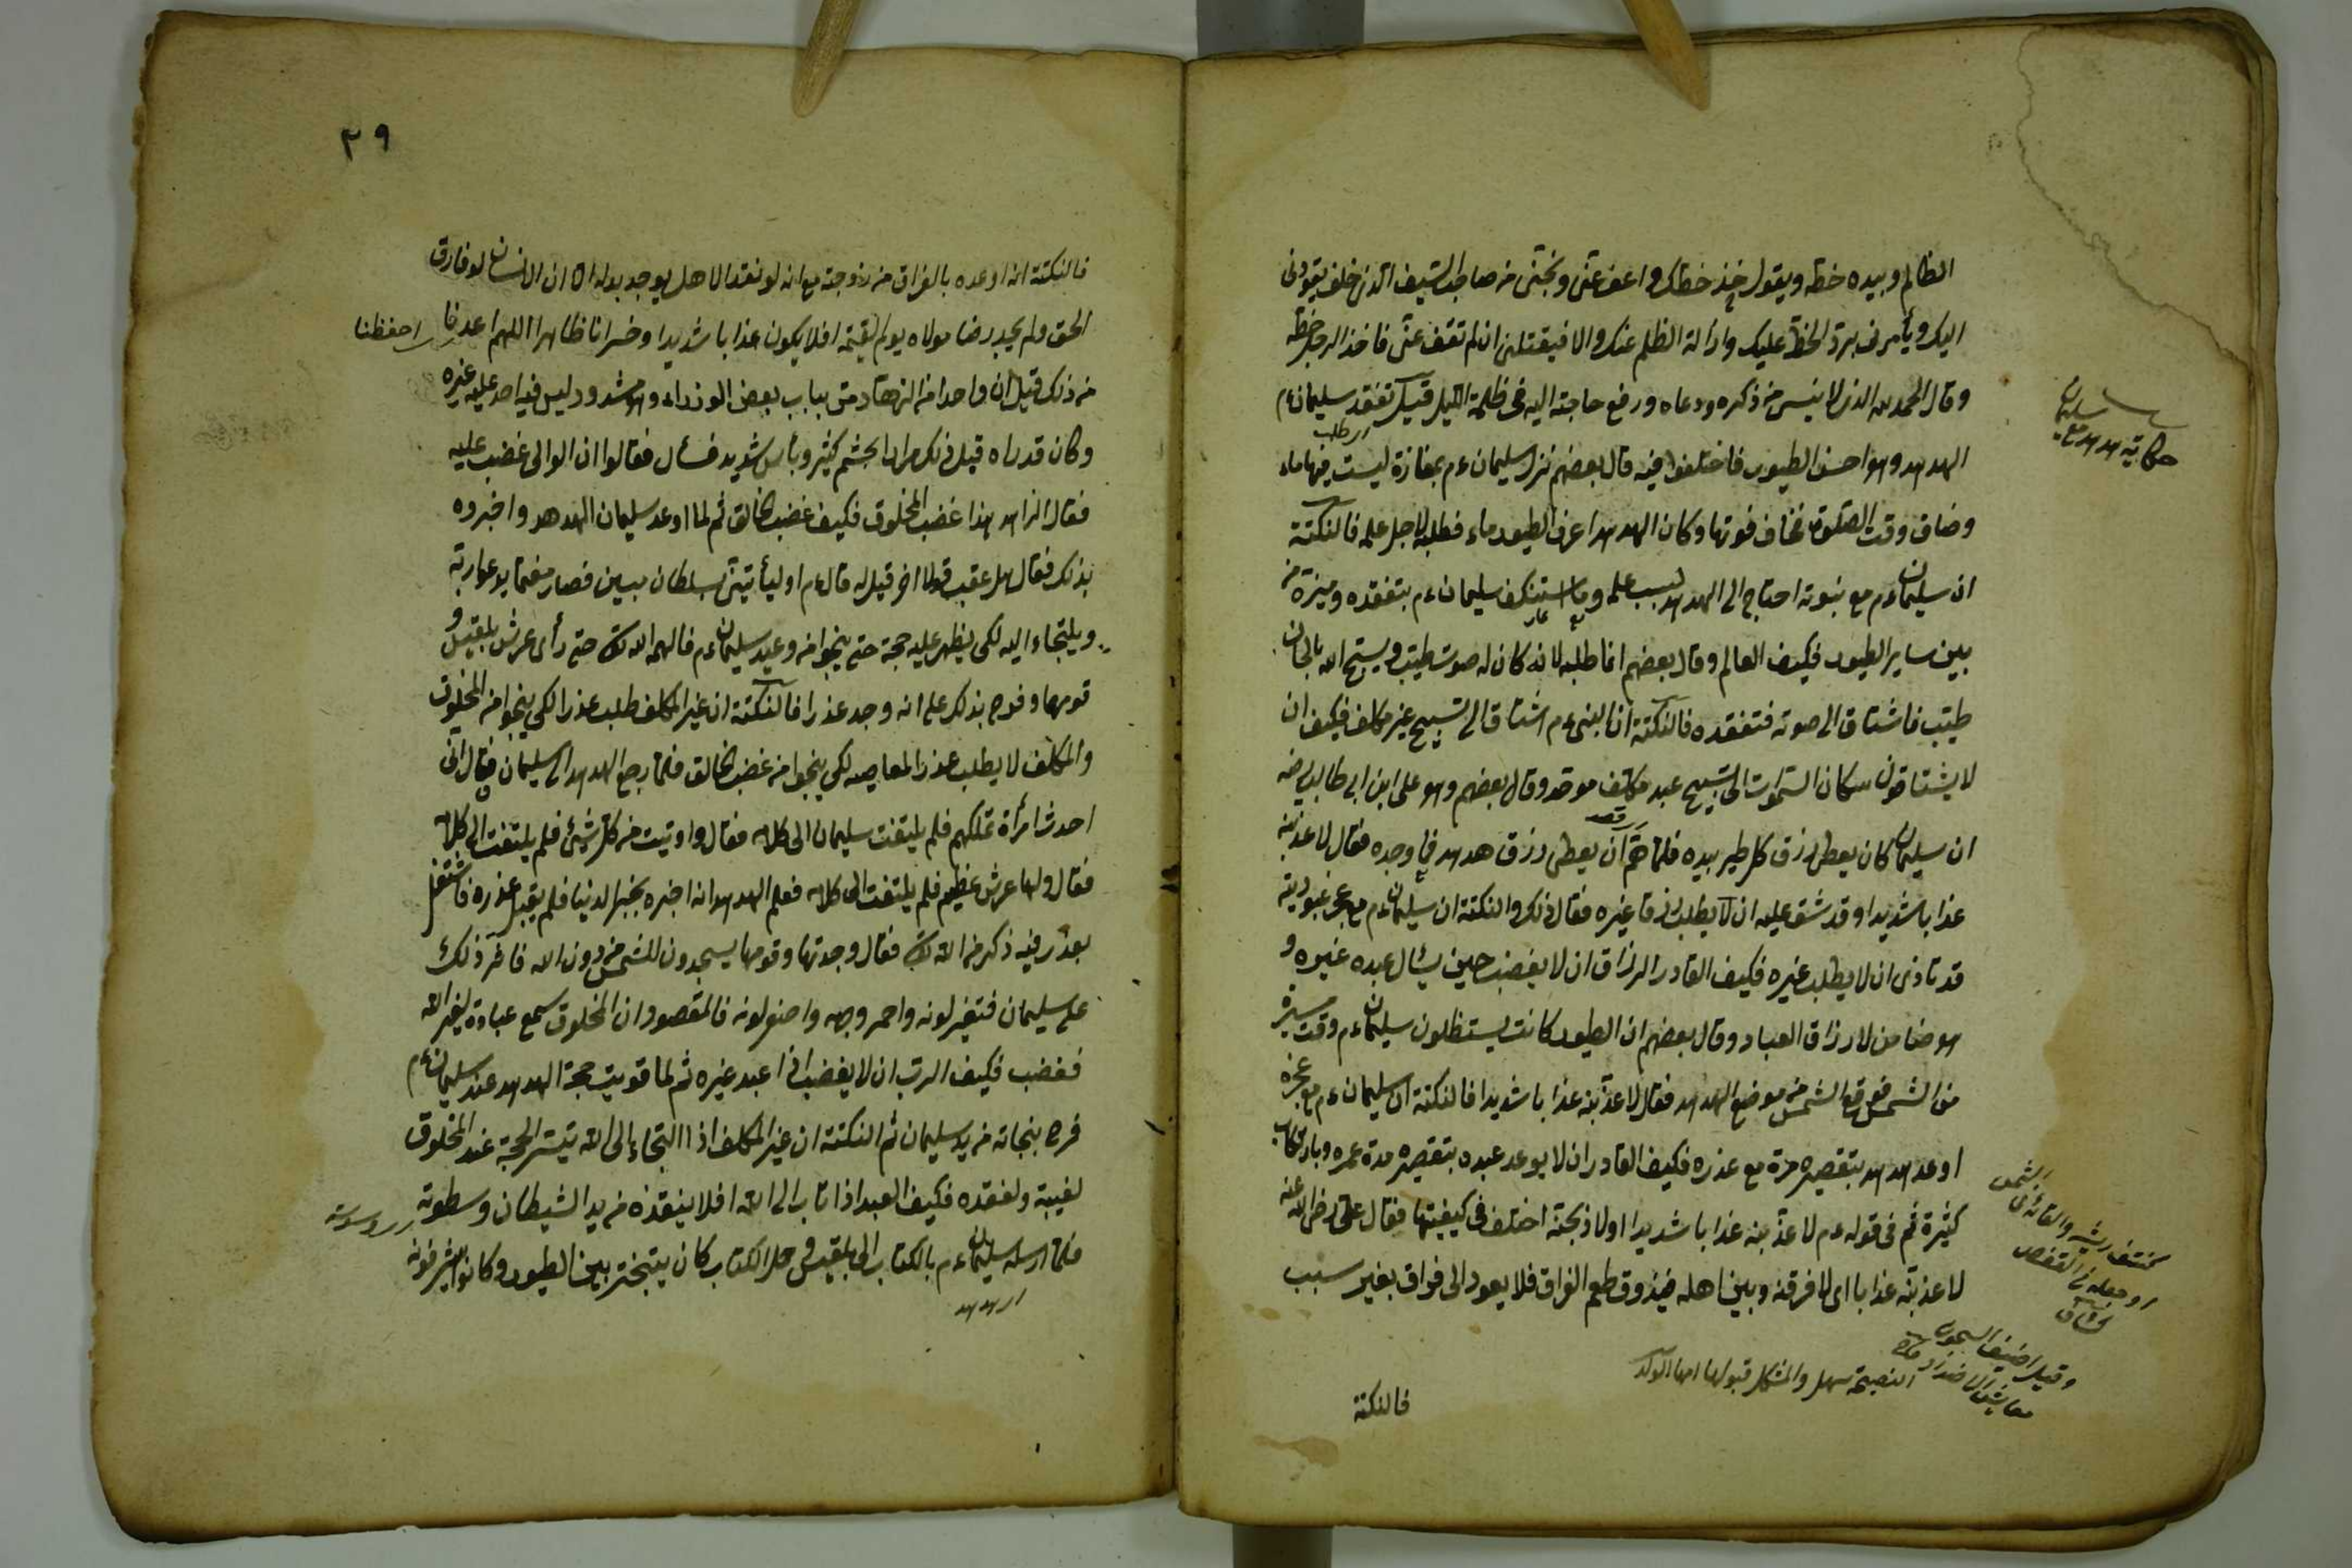 الظالم وبيده خطه ويقول خذ خطك واعف عنى ونجنى من صاحب السيف الذى خلفى يقودنى
اليك ويأمرنى برد الخط عليك وازالة الظلم عنك والا فيقتلنى ان لم تعف عنى فاخذ الرجل خطه
وقال الحمد لله الذى لا ينسى من ذكره ودعاه ورفع حاجته اليه فى ظلمة الليل قيل تفقد سليمان ءم
اى طلب
الهدهد وهو احسن الطيور فاختلفوا فيه قال بعضهم نزل سليمان ءم بمفازة ليست فيها ماء
وضاق وقت الصلوة فخاف فوتها وكان الهدهد اعرف الطيور ماء فطلبه لاجل علمه فالنكتة
ان سليمان ءم مع نبوته احتاج الى الهدهد بسبب علمه وما استنكف سليمان ءم بتفقده وميزه من
بين ساير الطيور فكيف العالم وقال بعضهم انما طلبه لانه كان له صوت طيب ويسبح الله بالحان
طيب فاشتاق الى صوته فتفقده فالنكتة ان النبى ءم اشتاق الى تسبيح غير مكلف فكيف ان
لا يشتاقون سكان السموات الى تسبيح عبد مكلف موحد وقال بعضهم وهو على ابن ابى طالب رضه
ان سليمان كان يعطى رزق كل طير بيده فلما هم ان يعطى رزق هدهد فما وجده فقال لاعذبنه
اى قصد
عذابا شديدا وقد شق عليه ان لا يطلب رزقا غيره فقال ذلك والنكتة ان سليمان ءم مع عجز عبوديته
قد تأذى ان لا يطلب غيره فكيف القادر الرزاق ان لا يغضب حين يسأل عبده غيره و
هو ضامن لارزاق العباد وقال بعضهم ان الطيور كانت يستظلون سليمان ءم وقت سيره
من الشمس فوقع الشمس من موضع الهدهد فقال لاعذبنه عذابا شديدا فالنكتة ان سليمان ءم مع عجزه
اوعد الهدهد بتقصيره مرة مع عذره فكيف القادر ان لا يوعد عبده بتقصيره مدة عمره وبارتكاب
كثيرة ثم فى قوله ءم لاعذبنه عذابا شديدا او لاذبحنه اختلف فى كيفيتها فقال على رضى الله عنه
لاعذبنه عذابا اى لافرقنه وبين اهله فيذوق طعم الفراق فلا يعود الى فراق بغير سبب
فالنكتة
حكاية هدهد مع سليمان
كنتف ريشه والقائه فى الشمس
او جعله فى القفص
وقيل اضيق السجون
معاشرة الاضداد
النصيحة سهل والمشكل قبولها ايها الولد
٣٩
فالنكتة انه اوعده بالفراق من زوجته مع انه لو فقد الاهل يوجد بدله الا ان الانسان لو فارق
الحق ولم يجد رضا مولاه يوم القيمة افلا يكون عذابا شديدا وخسرانا ظاهرا اللهم احفظنا
من ذلك قيل ان واحدا من الزهاد متى بباب بعض الوزراء وهو مشدود ليس فيه احد عليه غيره
وكان قد راه قبل ذلك مرارا بحشم كثير وبأس شديد فسأل فقالوا ان الوالى غضب عليه
فقال الزاهد هذا غضب المخلوق فكيف غضب الخالق ثم لما اوعد سليمان الهدهد واخبروه
بذلك فقال هل عقب قولا اخر قيل له قال ءم او ليأتينى بسلطان مبين فصار مغتما يدعو ربه
ويلتجاء اليه لكى يظهر عليه حجة حتى ينجوا من وعيد سليمان ءم فالهمه الله تع حتى رأى عرش بلقيس و
قومها وفرح بذلك على انه وجد عذرا فالنكتة ان غير المكلف طلب عذرا لكى ينجوا من المخلوق
والمكلف لا يطلب عذر المعاصيه لكى ينجوا من غضب الخالق فلما رجع الهدهد الى سليمان فقال انى
وجدت امرأة تملكهم فلم يلتفت سليمان الى كلامه فقال واوتيت من كل شئ فلم يلتفت الى كلامه
فقال ولها عرش عظيم فلم يلتفت الى كلامه فعلم الهدهد انه اخبره بخبر الدنيا فلم يقبل عذره فاشتغل
بعذر فيه ذكر من الله تع فقال وجدتها وقومها يسجدون للشمس من دون الله فاثر ذلك
على سليمان فتغير لونه واحمر وجهه واصفر لونه فالمقصود ان المخلوق سمع عبادة لغير الله
فغضب فكيف الرب ان لا يغضب اذا عبد غيره ثم لما قويت حجة الهدهد عند سليمان ءم
فرح بنجاته من يد سليمان ثم النكتة ان غير المكلف اذا التجاء الى الله تيسر الحجة عند المخلوق
لغيبة ولفقده فكيف العبد اذا تاب الى الله افلا ينقذه من يد الشيطان وسطوته
اى وسوسته
فلما ارسله سليمان ءم بالكتاب الى بلقيس حمل الكتاب كان يتبختر بين الطيور وكانوا يشرفونه
اى هدهد